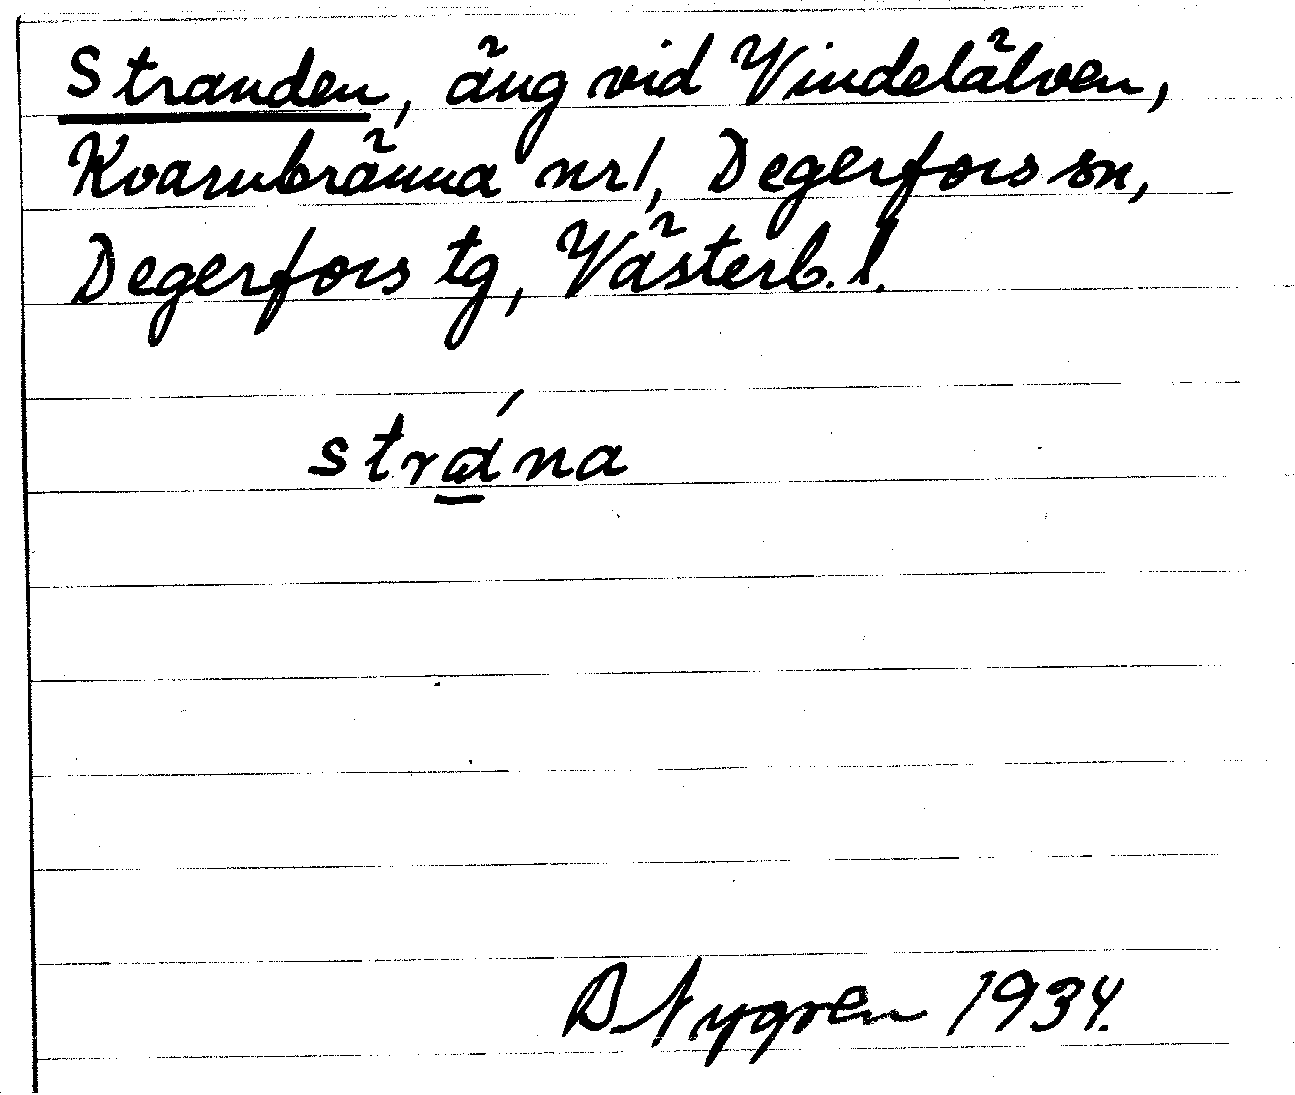 Stranden, äng vid Vindelälven,
Kvarnbränna nr 1, Degerfors sn,
Degerfors tg, Västerb. l.
stra̲´na
B Nygren 1934.